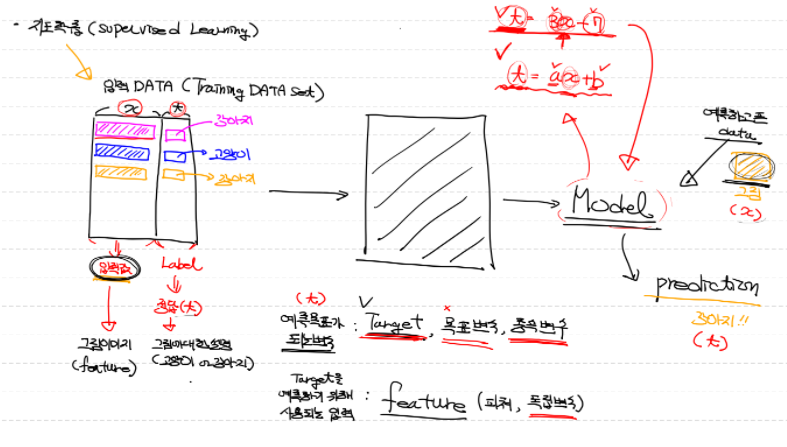 · 지도학습 (Supervised Learning)
입력 DATA (Training DATA Set)
x t
강아지
고양이
강아지
입력값
Label
정답(t)
그림이미지
(feature)
그림에대한설명
(고양이 or 강아지)
t = 3x - 7
t = ax + b
Model
예측하고픈
data
그림
(x)
prediction
강아지!!
(t)
(t)
예측목표가
되는변수 : Target, 목표변수, 종속변수
Target을
예측하기 위해
사용되는 입력 : feature (피처, 독립변수)